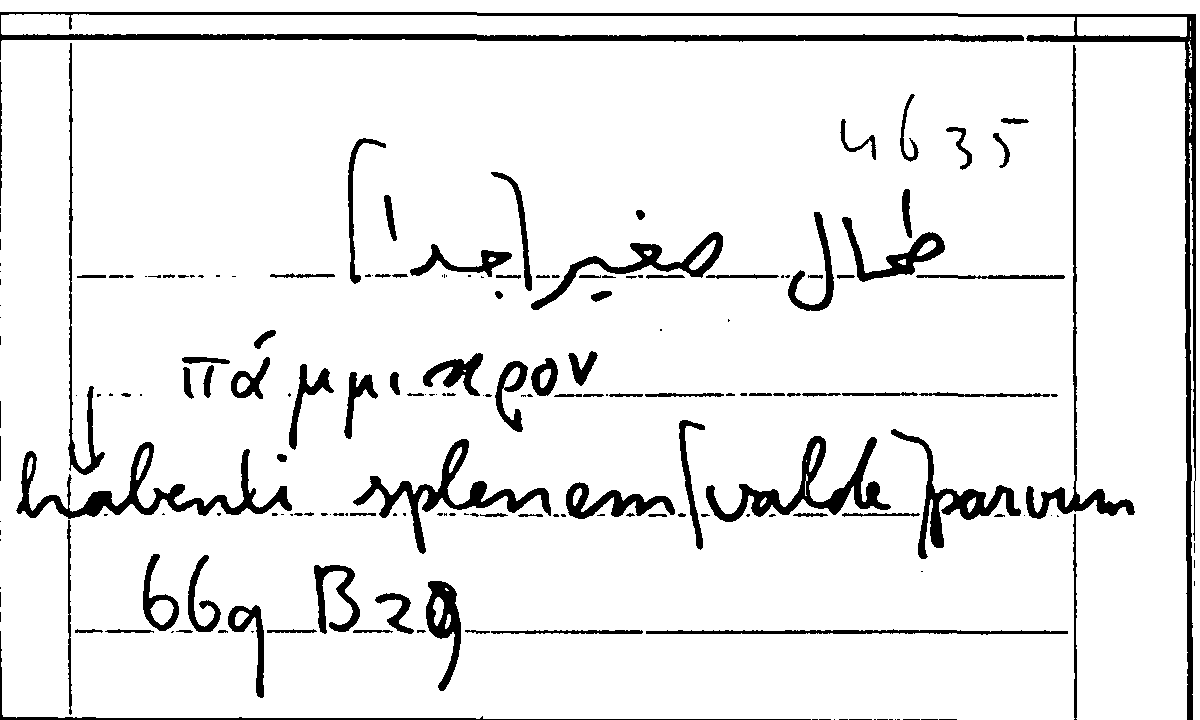 4635
طحال صغير [جدا]
πάμμικρον
habenti splenem [valde] parvum
669 B 29